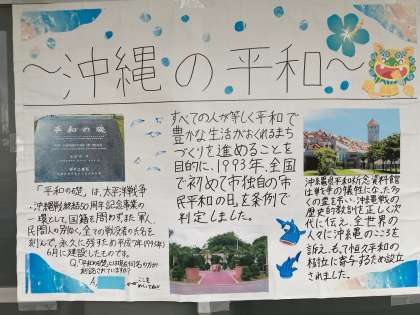 ～沖縄の平和～
平和の礎
すべての人が等しく平和で
豊かな生活がおくれるまち
づくりを進めることを
目的に、1993年、全国
で初めて市独自の市
民平和の日を条例で
制定しました。
「平和の礎」は、太平洋戦争
・沖縄戦終結50周年記念事業の
一環として国籍を問わず、また、軍人、
民間人の別なく、全ての戦没者の氏名を
刻んで、永久に残すため平成7年(1995年)
6月に建設したものです。
Q.「平和の礎」には現在何名の方が
記されていますか?
A.
ここを
めくってね
沖縄県平和祈念資料館
は戦争の犠牲になった多
くの霊を弔い、沖縄戦の
歴史的教訓を正しく次代
に伝え、全世界の
人々に沖縄のこころを
訴え、もって恒久平和の
樹立に寄与するため設立
されました。